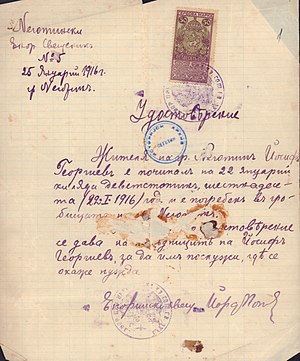 Неготински
Енор. Свещеник
№ 5
25 Януарий 1916 г.
гр. Неготинъ
Удостовѣрение
Жителя на гр. Неготинъ Йосифъ
Георгиевъ е починалъ на 22 януарий
хиляда деветстотинъ, шестнадесета
/22-I 1916/ год. и е погребенъ въ гро-
бищата
Удостовѣрение
се дава на наследниците на Йосифъ
Георгиевъ за да им послужи, где се
окаже нужда
Енорийски свещ. Йорд.